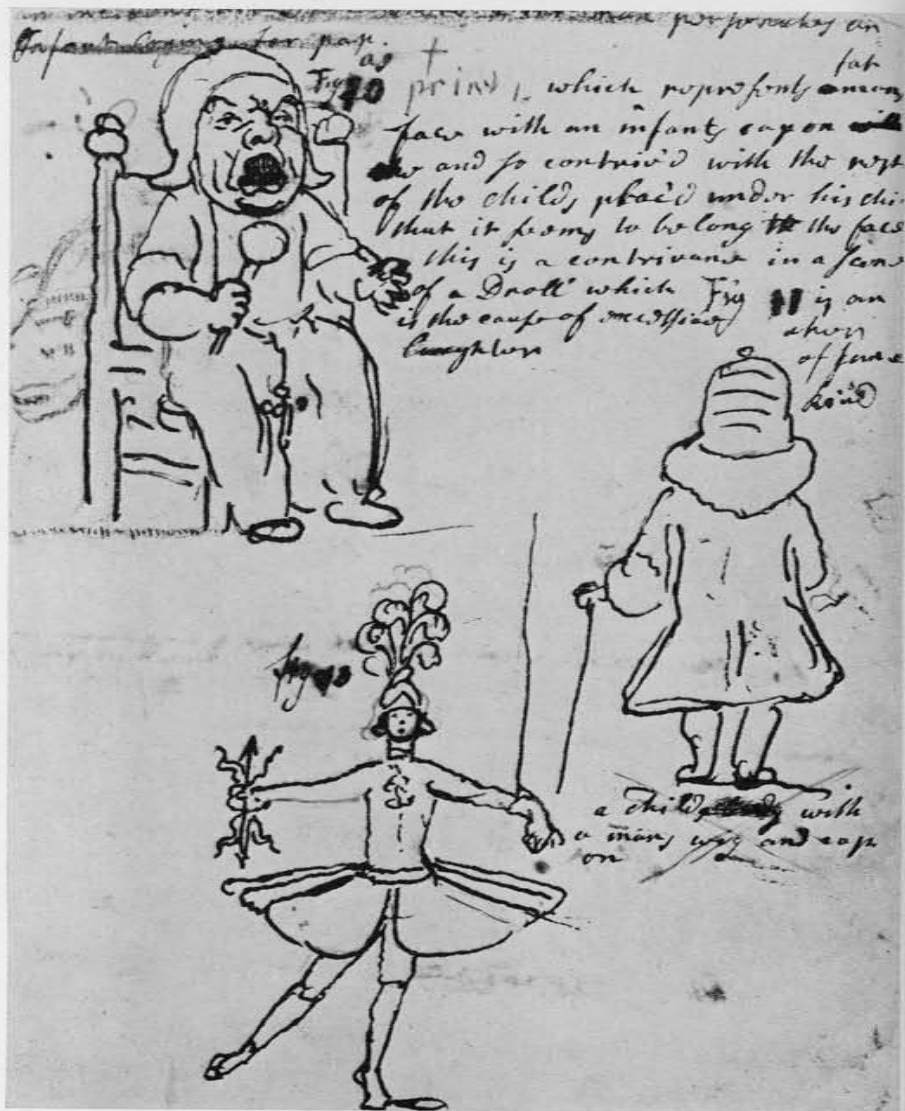 personates an
Infant crying for pap.
as
Fig 10
print 1, which represents
fat
face with an infants cap on
and so contriv'd with the rest
of the child, plac'd under his
that it seems to belong the face
this is a contrivance in a
of a Droll which
is the cause of excessive
laughter
Fig 11 is an
other
of same
kind
fig
a child with
a mans wig and cap
on